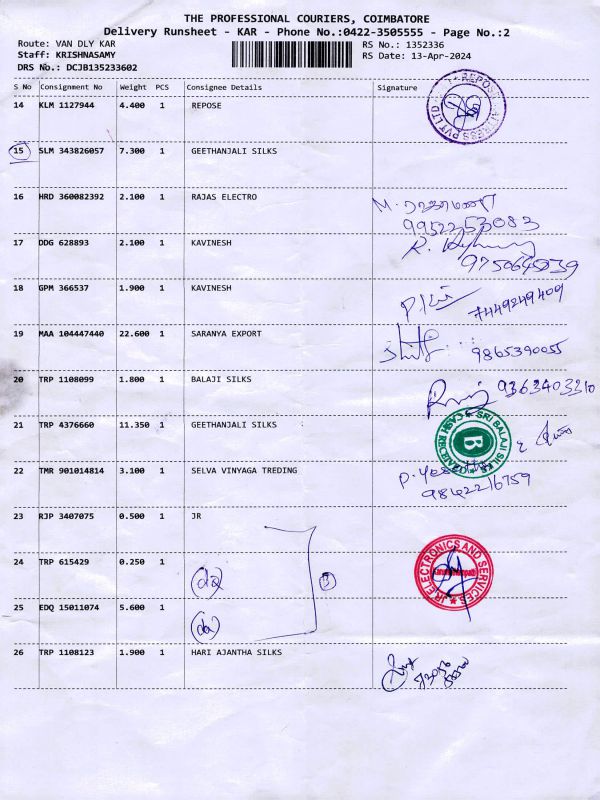 THE PROFESSIONAL COURIERS, COIMBATORE
Delivery Runsheet - KAR - Phone No.:0422-3505555 - Page No.:2
Route: VAN DLY KAR
RS No.: 1352336
Staff: KRISHNASAMY
RS Date: 13-Apr-2024
DRS No.: DCJB135233602
S No Consignment No Weight PCS Consignee Details Signature
14 KLM 1127944 4.400 1 REPOSE
15 SLM 343826057 7.300 1 GEETHANJALI SILKS
16 HRD 360082392 2.100 1 RAJAS ELECTRO
9952253083
17 DDG 628893 2.100 1 KAVINESH
18 GPM 366537 1.900 1 KAVINESH
7449249409
19 MAA 104447440 22.600 1 SARANYA EXPORT
9865390055
20 TRP 1108099 1.800 1 BALAJI SILKS
9363403310
21 TRP 4376660 11.350 1 GEETHANJALI SILKS
SRI BALAJI SILKS
B
22 TMR 901014814 3.100 1 SELVA VINYAGA TREDING
9842216759
23 RJP 3407075 0.500 1 JR
24 TRP 615429 0.250 1
JR ELECTRONICS AND SERVICES
25 EDQ 15011074 5.600 1
26 TRP 1108123 1.900 1 HARI AJANTHA SILKS